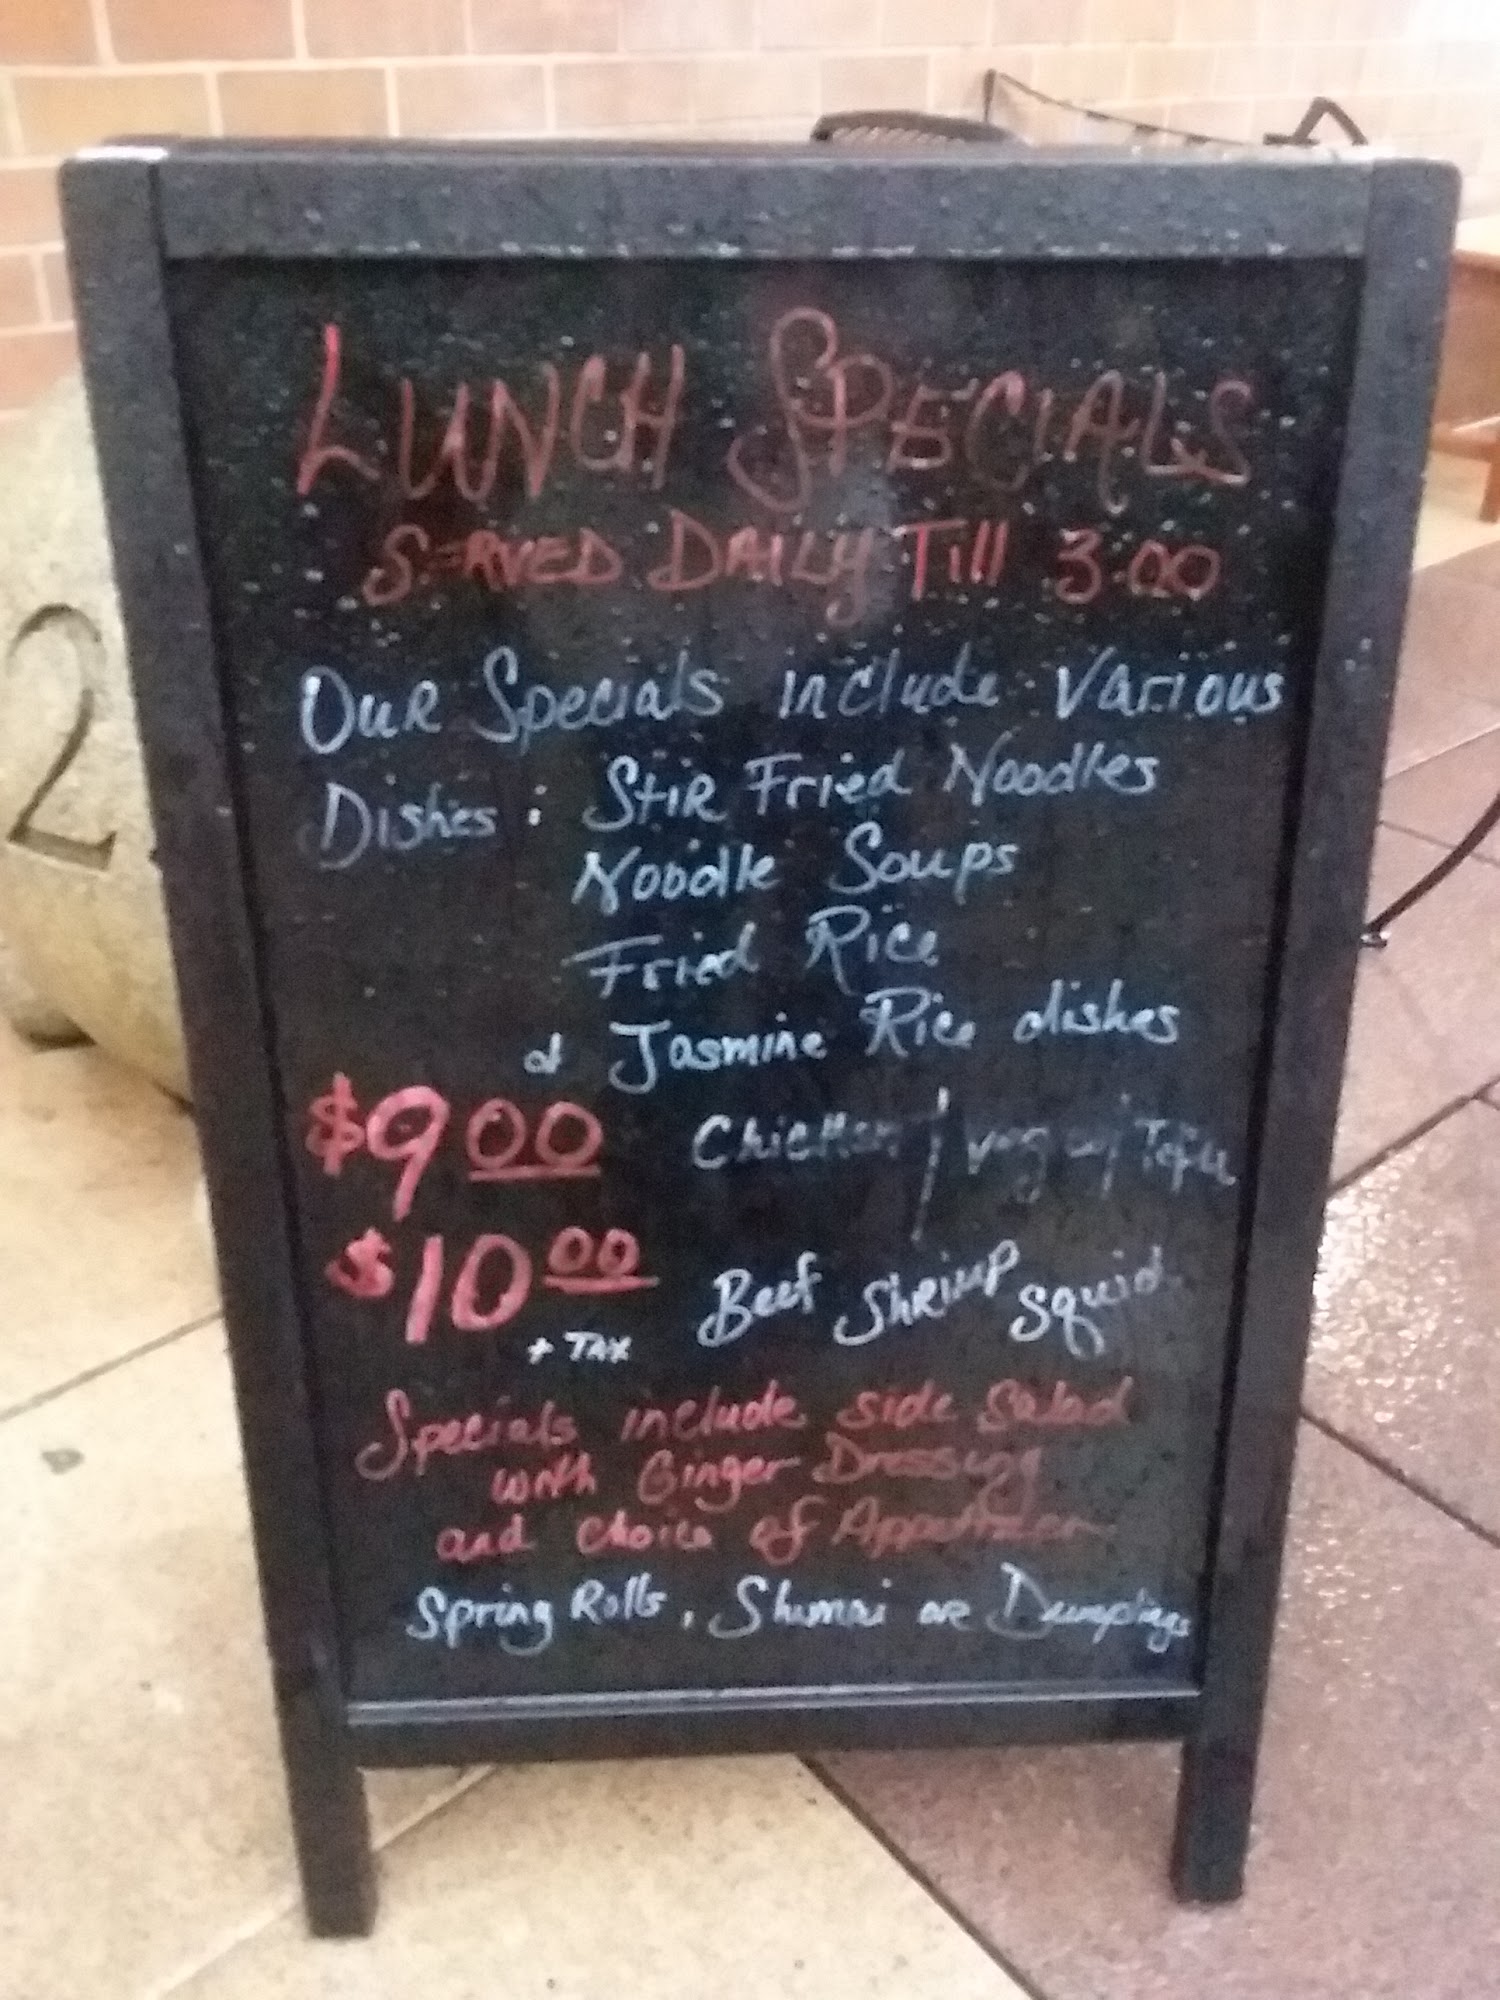 LUNCH SPECIALS
SERVED DAILY Till 3:00
Our Specials include Various
Dishes: Stir Fried Noodles
Noodle Soups
Fried Rice
& Jasmine Rice dishes
$9.00 Chicken / veg w/ Tofu
$10.00 Beef Shrimp Squid
+ TAX
Specials include side Salad
with Ginger Dressing
and choice of Appetizer
Spring Rolls, Shumai or Dumplings
2